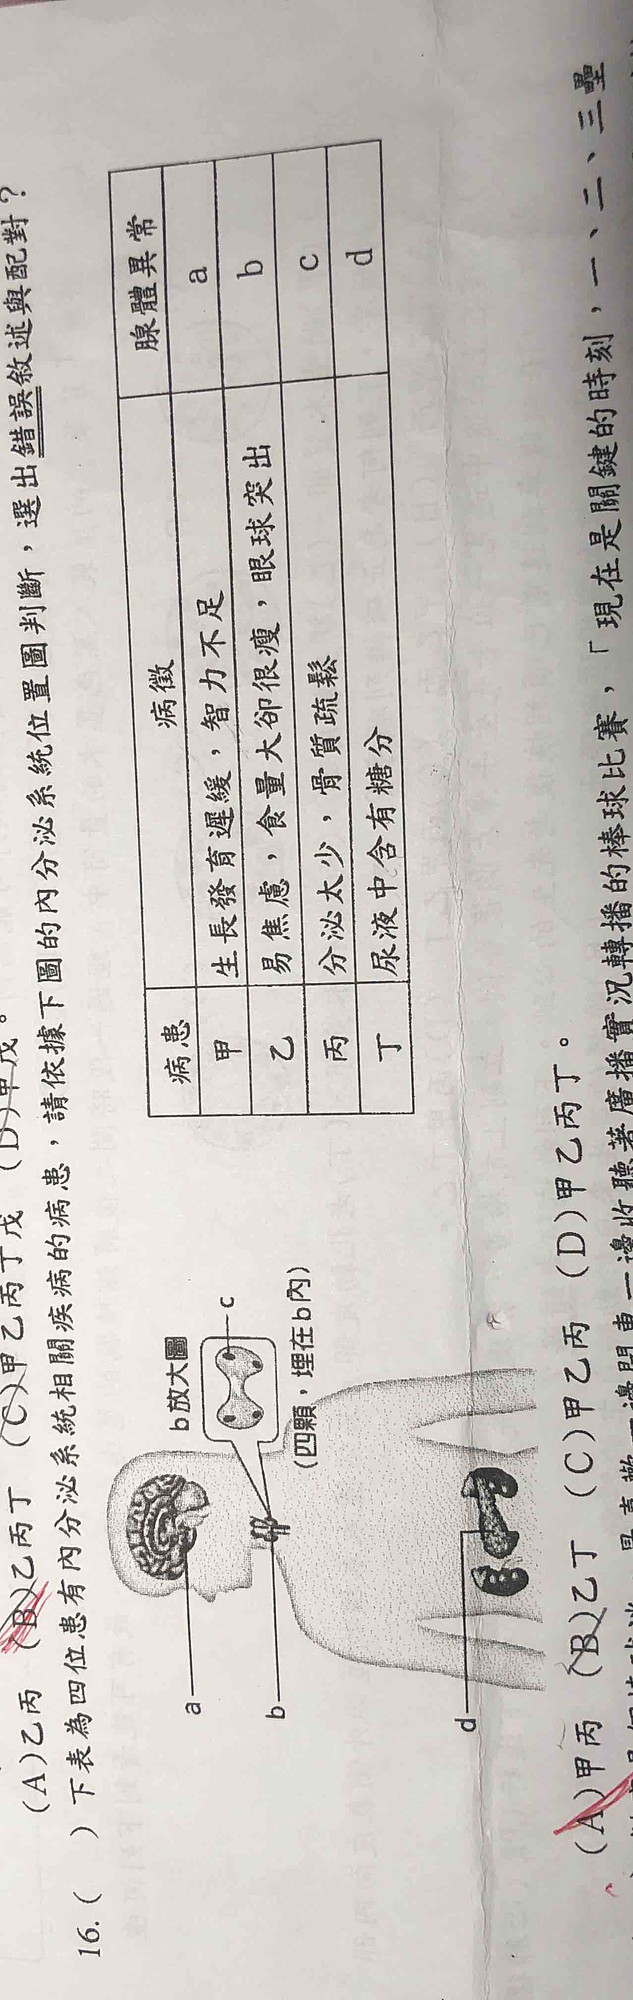 (A)乙丙 (B)乙丙丁 (C)甲乙丙丁戊 (D)甲戊。
16.( )下表為四位患有內分泌系統相關疾病的病患，請依據下圖的內分泌系統位置圖判斷，選出錯誤敘述與配對？
a
b
d
b放大圖
c
(四顆，埋在b內)
病患 病徵 腺體異常
甲 生長發育遲緩，智力不足 a
乙 易焦慮，食量大卻很瘦，眼球突出 b
丙 分泌太少，骨質疏鬆 c
丁 尿液中含有糖分 d
(A)甲丙 (B)乙丁 (C)甲乙丙 (D)甲乙丙丁。
一邊收聽著廣播實況轉播的棒球比賽，「現在是關鍵的時刻，一、二、三壘